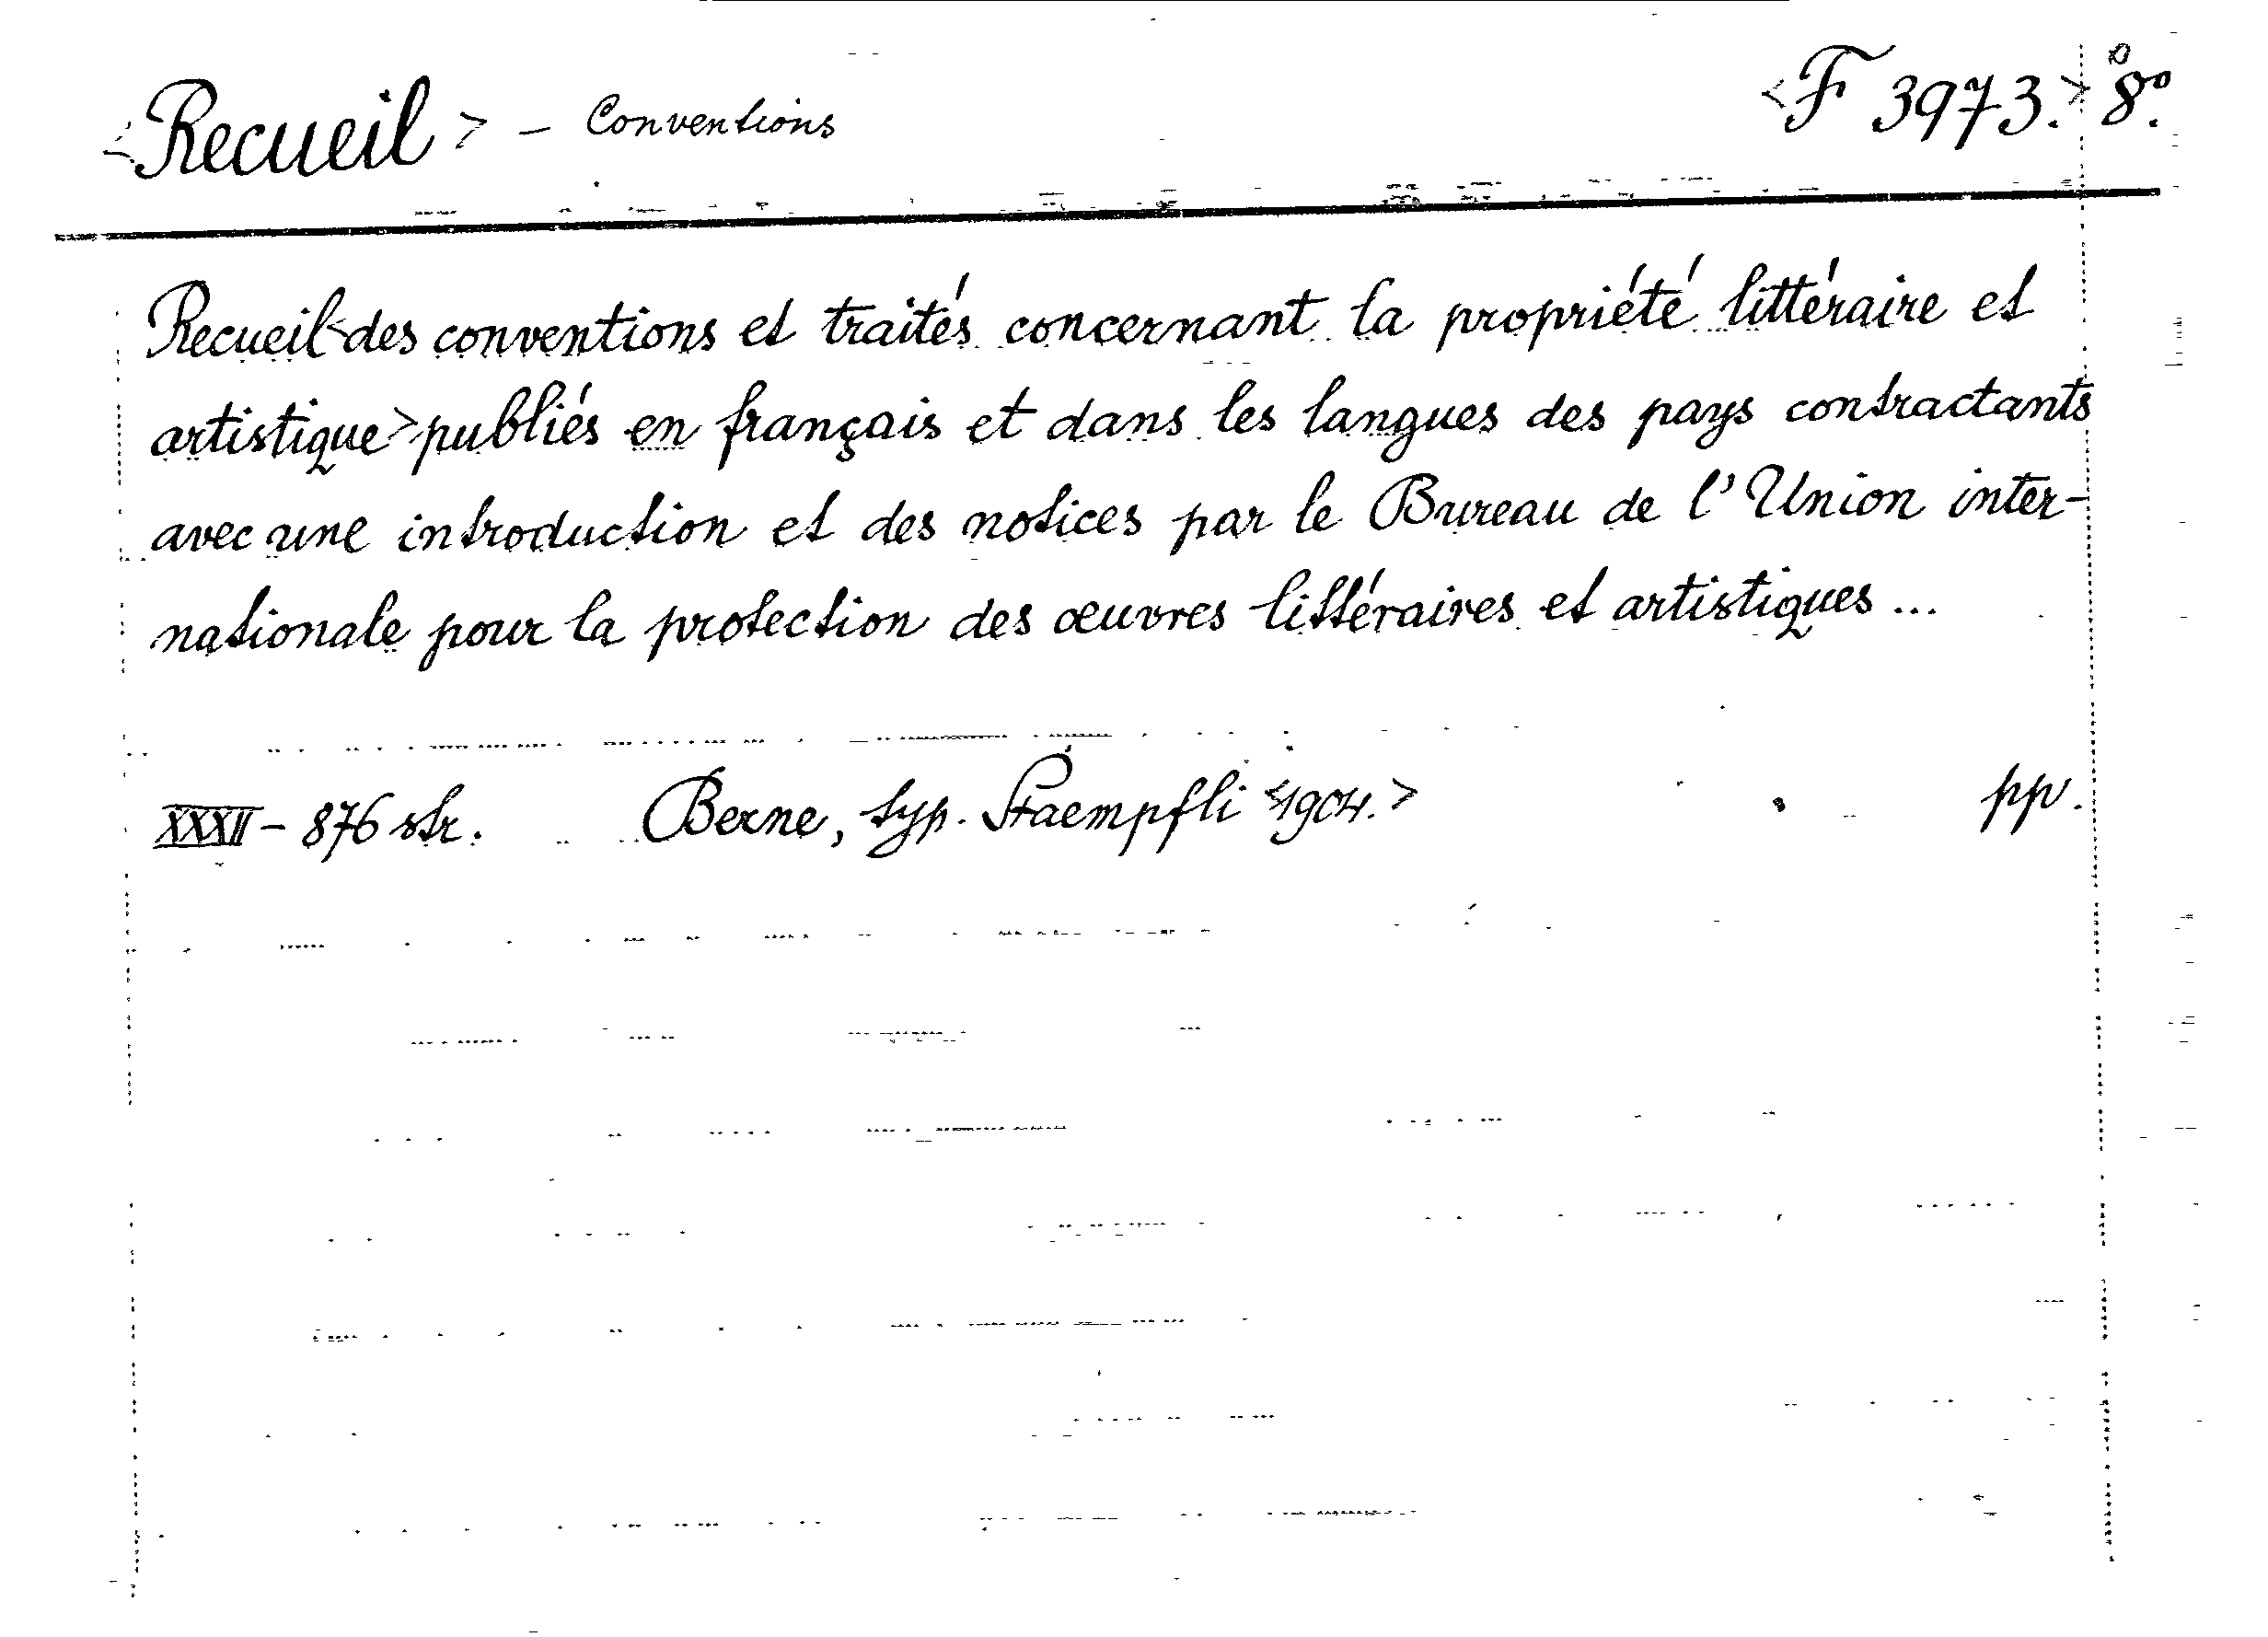 <Recueil> - Conventions <F 3973.> 8º.
Recueil <des conventions et traités concernant la propriété littéraire et
artistique> publiés en français et dans les langues des pays contractants
avec une introduction et des notices par le Bureau de l'Union inter-
nationale pour la protection des œuvres littéraires et artistiques...
XXXII - 876 str. Berne, typ. Staempfli <1904.> pp.